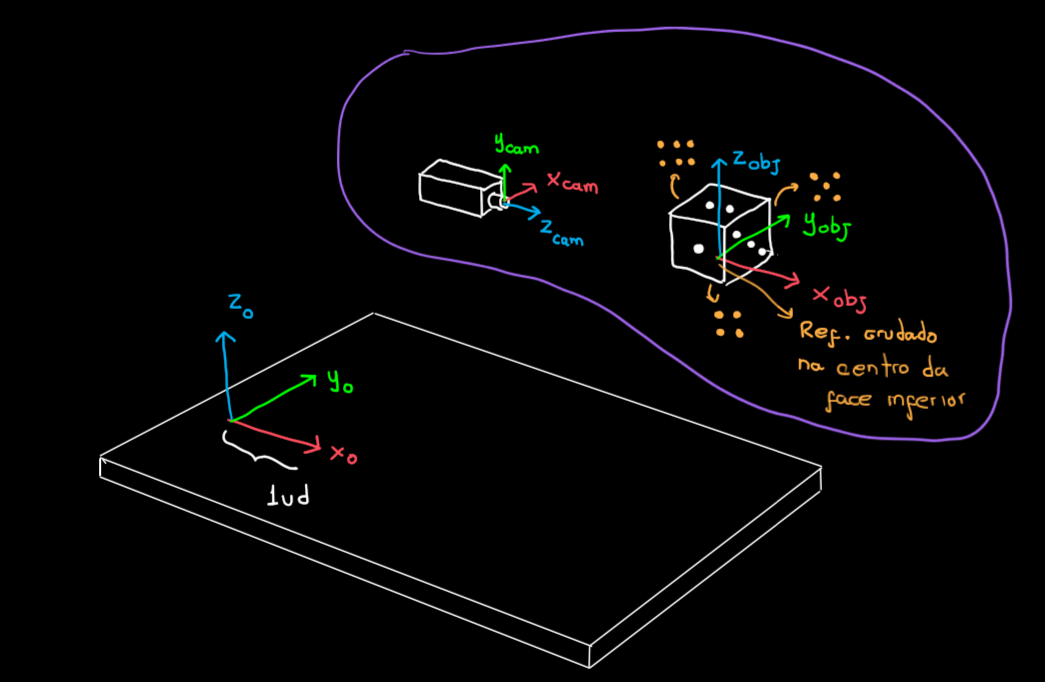 ycam
xcam
zcam
zobj
yobj
xobj
Ref. grudado
na centro da
face inferior
z0
y0
x0
1ud